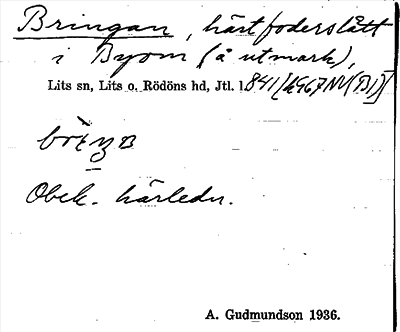 Bringan, hårt foderslått
i Byom (å utmark),
Lits sn, Lits o. Rödöns hd, Jtl. 1841 [
Obek. härledn.
A. Gudmundson 1936.